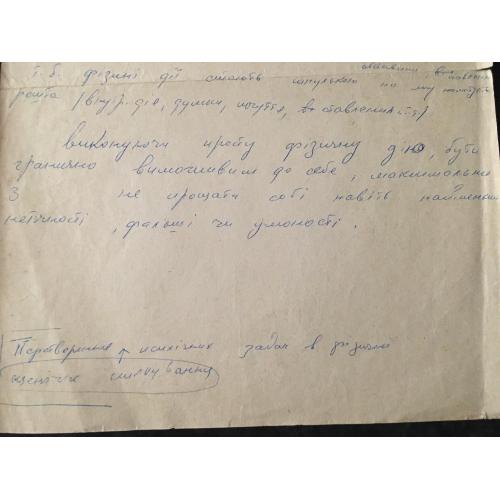 т.б. фізичні дії стають
решта (внутр. дія, думки, почуття, ставлення і т.д.)
виконуючи просту фізичну дію, бути
гранично вимогливим до себе, максимально
З не прощати собі навіть найменшої
неточності, фальші чи умовності.
Перетворення психічних задач в фізичні
сценічне спілкування